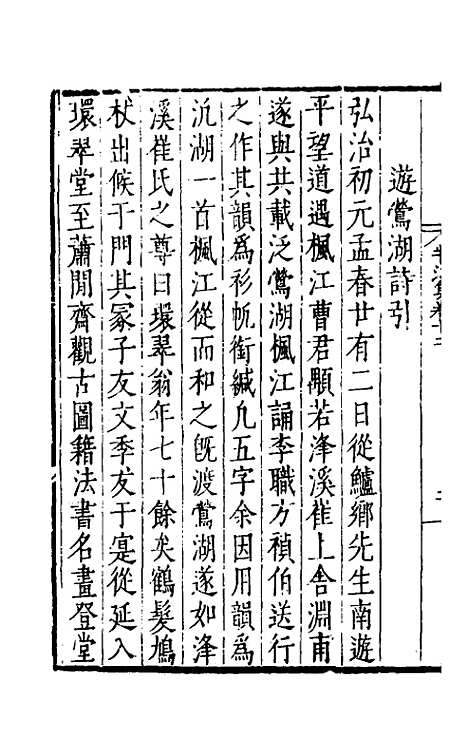 遊鶯湖詩引
弘治初元孟春廿有二日從鱸鄉先生南遊
平望道遇楓江曹君顒若澤溪崔上舍淵甫
遂與共載泛鶯湖楓江誦李職方禎伯送行
之作其韻爲衫帆銜緘凡五字余因用韻爲
汎湖一首楓江從而和之旣渡鶯湖遂如澤
溪崔氏之尊曰環翠翁年七十餘矣鶴髮鳩
杖出候于門其冢子友文季友于寔從延入
環翠堂至蕭閒齋觀古圖籍法書名畫登堂